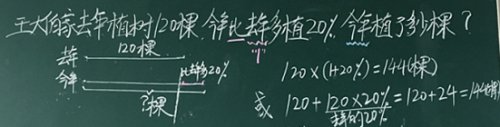 王大伯家去年植树120棵,今年比去年多植20%,今年植了多少棵?
120棵
去年
比去年多20%
今年
?棵
"1"
120×(1+20%)=144(棵)
或 120+120×20%=120+24=144(棵)
去年的20%